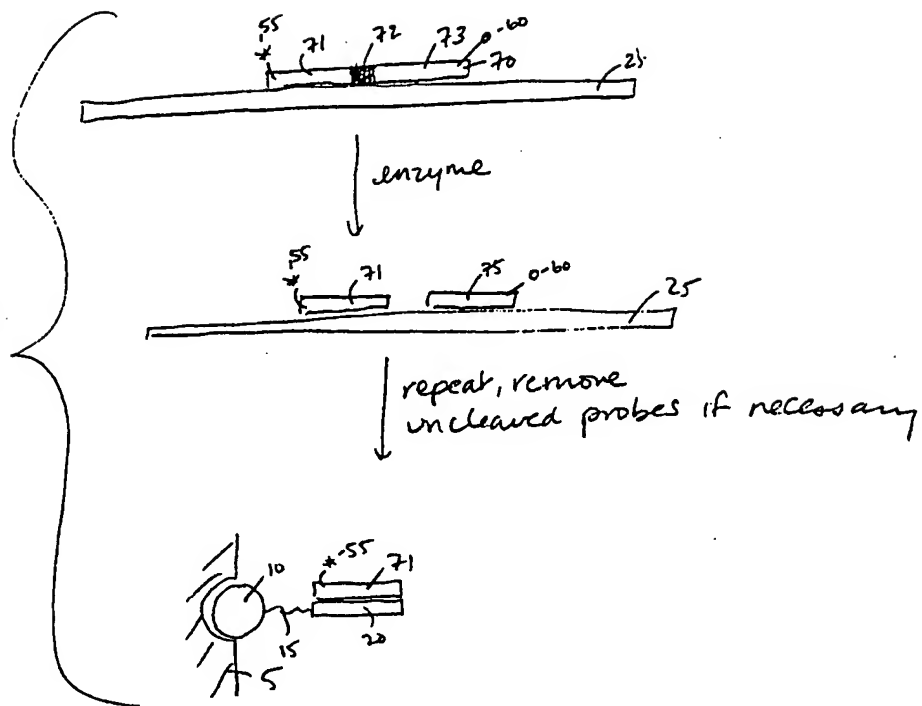 55
*
71
72
73
0-60
70
25
enzyme
55
*
71
75
0-60
25
repeat, remove
uncleaved probes if necessary
10
*-55
71
15
20
5